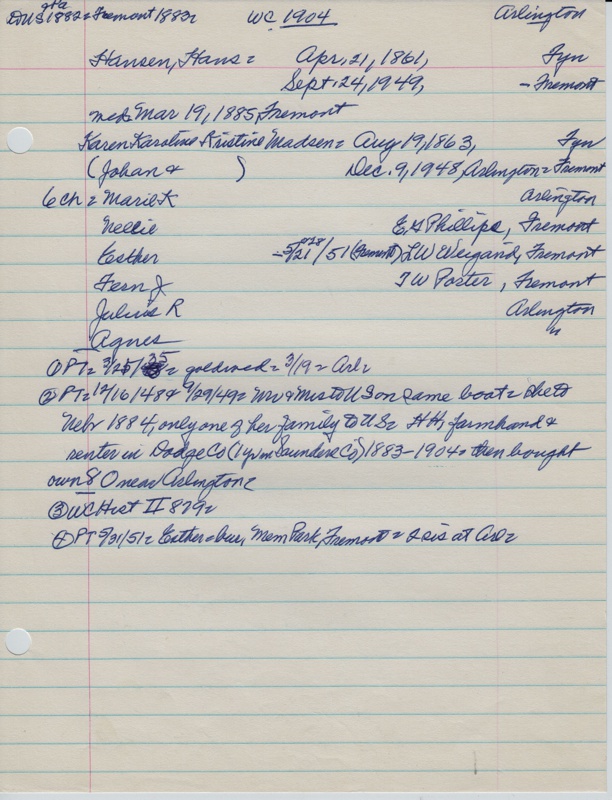 DUS 1882= Fremont 1883= WC 1904 Arlington
Hansen, Hans = Apr. 21, 1861, Fyn
Sept. 24, 1949, - Fremont
med. Mar 19, 1885, Fremont
Karen Karoline Kristine Madsen = Aug 19, 1863, Fyn
(Johan & ) Dec. 9, 1948, Arlington = Fremont
6 ch = Marie K Arlington
Nellie E G Phillips, Fremont
Esther - 5/21/51 (Fremont) L W Weigand, Fremont
Fern J T W Porter, Fremont
Julius R Arlington
Agnes "
① PT = 3/25/35 = goldwed = 3/19 = Arl=
② PT = 12/16/48 & 9/29/49 = Mr & Mrs to US on same boat = she to
Nebr 1884, only one of her family to US = HH, farmhand &
renter in Dodge Co (1 yr in Saunders Co) 1883-1904, then bought
own 80 near Arlington=
③ WC Hist II 879=
④ PT 5/31/51= Esther = bur, Mem Park, Fremont = 2 sis at Arl=